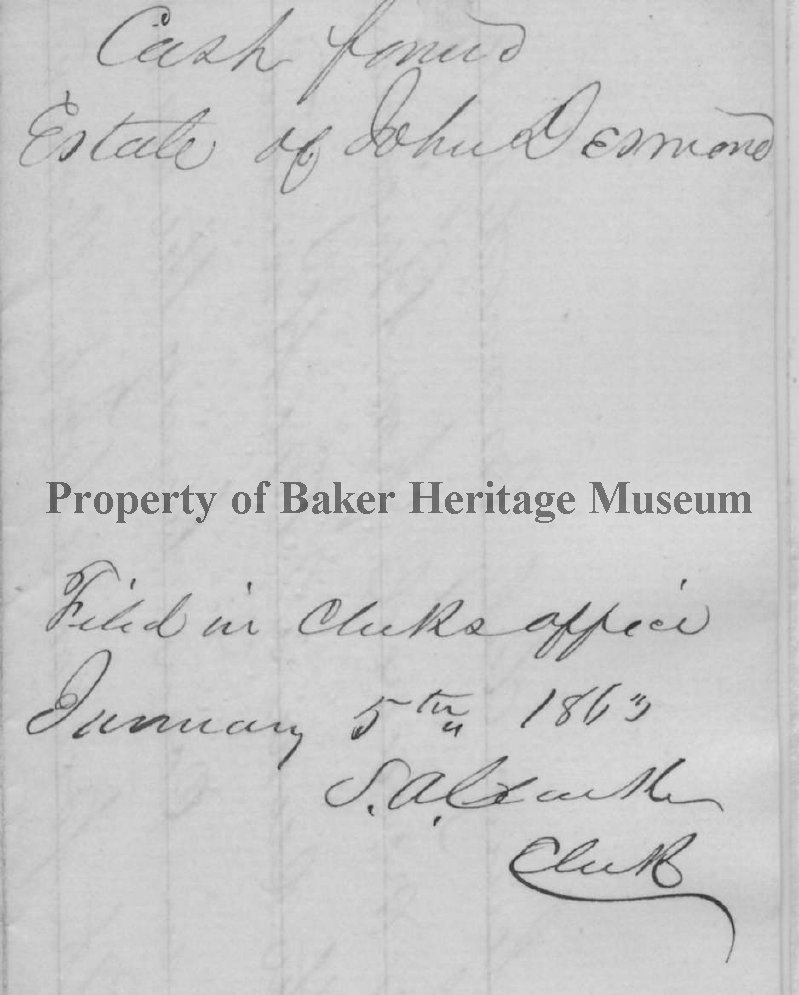 Cash found
Estate of John Desmond
Property of Baker Heritage Museum
Filed in Clerks office
January 5th 1863
S. A. Clarke
Clerk